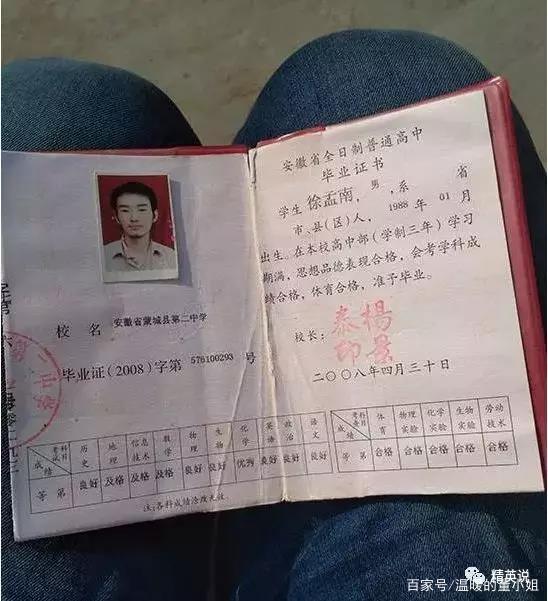 校 名 安徽省蒙城县第二中学
毕业证(2008)字第 576100293 号
科目 考试 成绩 历史 地理 信息技术 数学 物理 生物 化学 英语 政治 语文
等 第 良好 及格 及格 及格 良好 良好 优秀 良好 良好 良好
注:各科成绩涂改无效
安徽省全日制普通高中
毕业证书
学生 徐孟南 , 男 , 系 省
市、县(区)人, 1988 年 01 月
出生。在本校高中部(学制三年)学习
期满,思想品德表现合格,会考学科成
绩合格,体育合格,准予毕业。
校长: 泰楊印景
二〇〇八年四月三十日
科目 考查 成绩 体育 物理实验 化学实验 生物实验 劳动技术
等 第 合格 合格 合格 合格 合格
精英说
百家号/温暖的董小姐